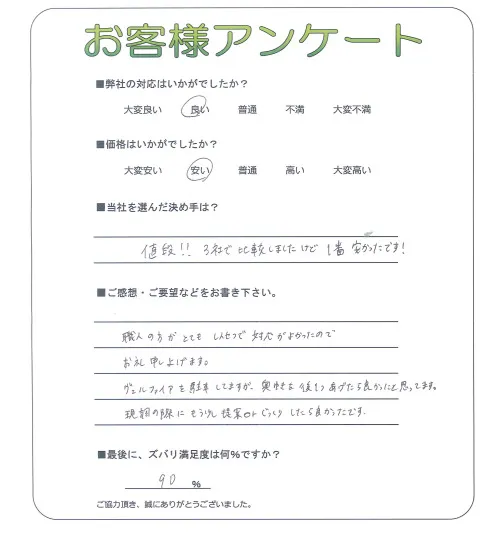 お客様アンケート
■弊社の対応はいかがでしたか？
大変良い 良い 普通 不満 大変不満
■価格はいかがでしたか？
大変安い 安い 普通 高い 大変高い
■当社を選んだ決め手は？
値段!! 3社で比較しましたけど1番安かったです!
■ご感想・ご要望などをお書き下さい。
職人の方がとてもしんせつで対応がよかったので
お礼申し上げます。
ヴェルファイアを駐車してますが、奥行きを あげたら良かったと思ってます。
現調の際にもう少し提案 じっくりしたら良かったです。
■最後に、ズバリ満足度は何%ですか？
90 %
ご協力頂き、誠にありがとうございました。